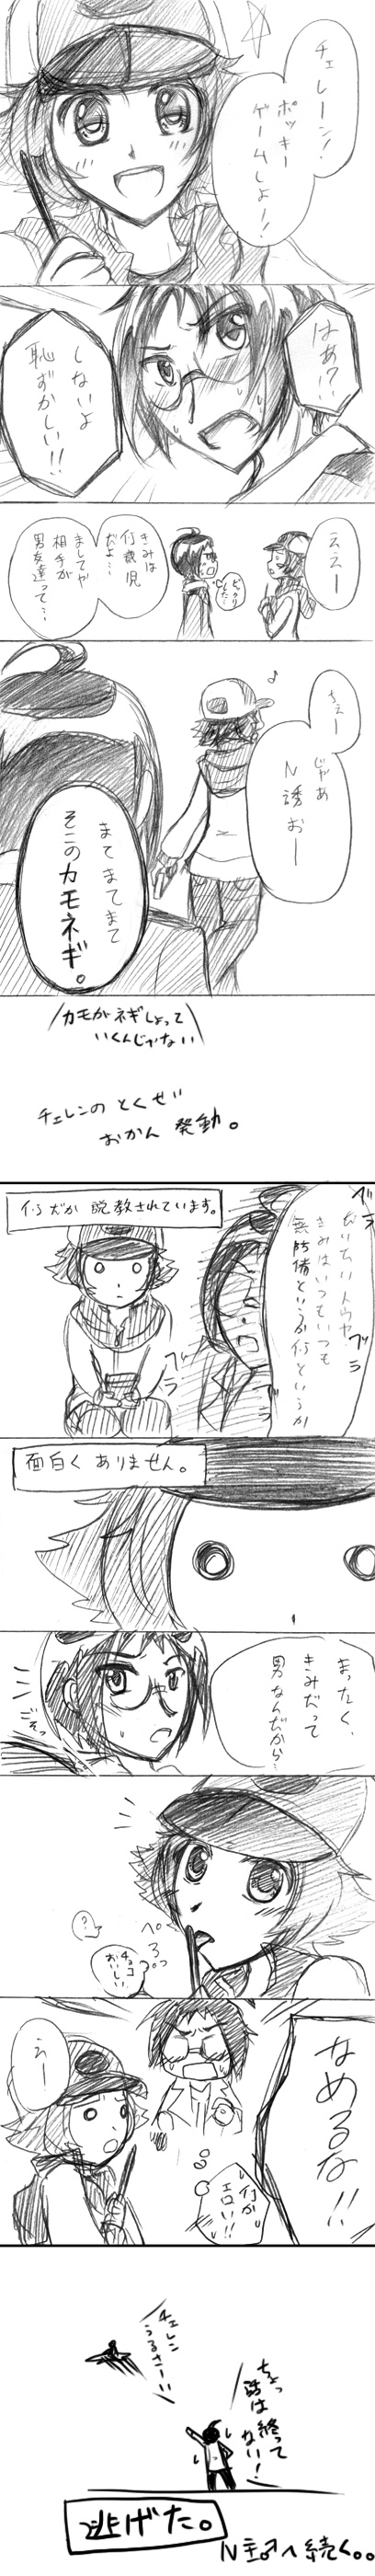 チェレーン!
ポッキー
ゲームしよ!
はあ!?
しないよ
恥ずかしい!!
ええー
ビックリ
した…
きみは
何歳児
だよ…
ましてや
相手が
男友達って…
ちぇー
じゃあ
N誘おー
♪
まてまてまて
そこのカモネギ。
カモがネギしょって
いくんじゃない
チェレンの とくせい
おかん 発動。
グラ
だいたいトウヤ
きみはいつもいつも
無防備というか何というか
ブラ
何だか 説教されています。
ブラ
面白く ありません。
まったく、
きみだって
男なんだから…
ごそっ
ぺろっ
?
チョコ
おいしい
なめるな!!
えー
何か
エロい!!
チェレン
うるさーい
ちょっ
話は終って
ない!
逃げた。
N主♂へ続く。。